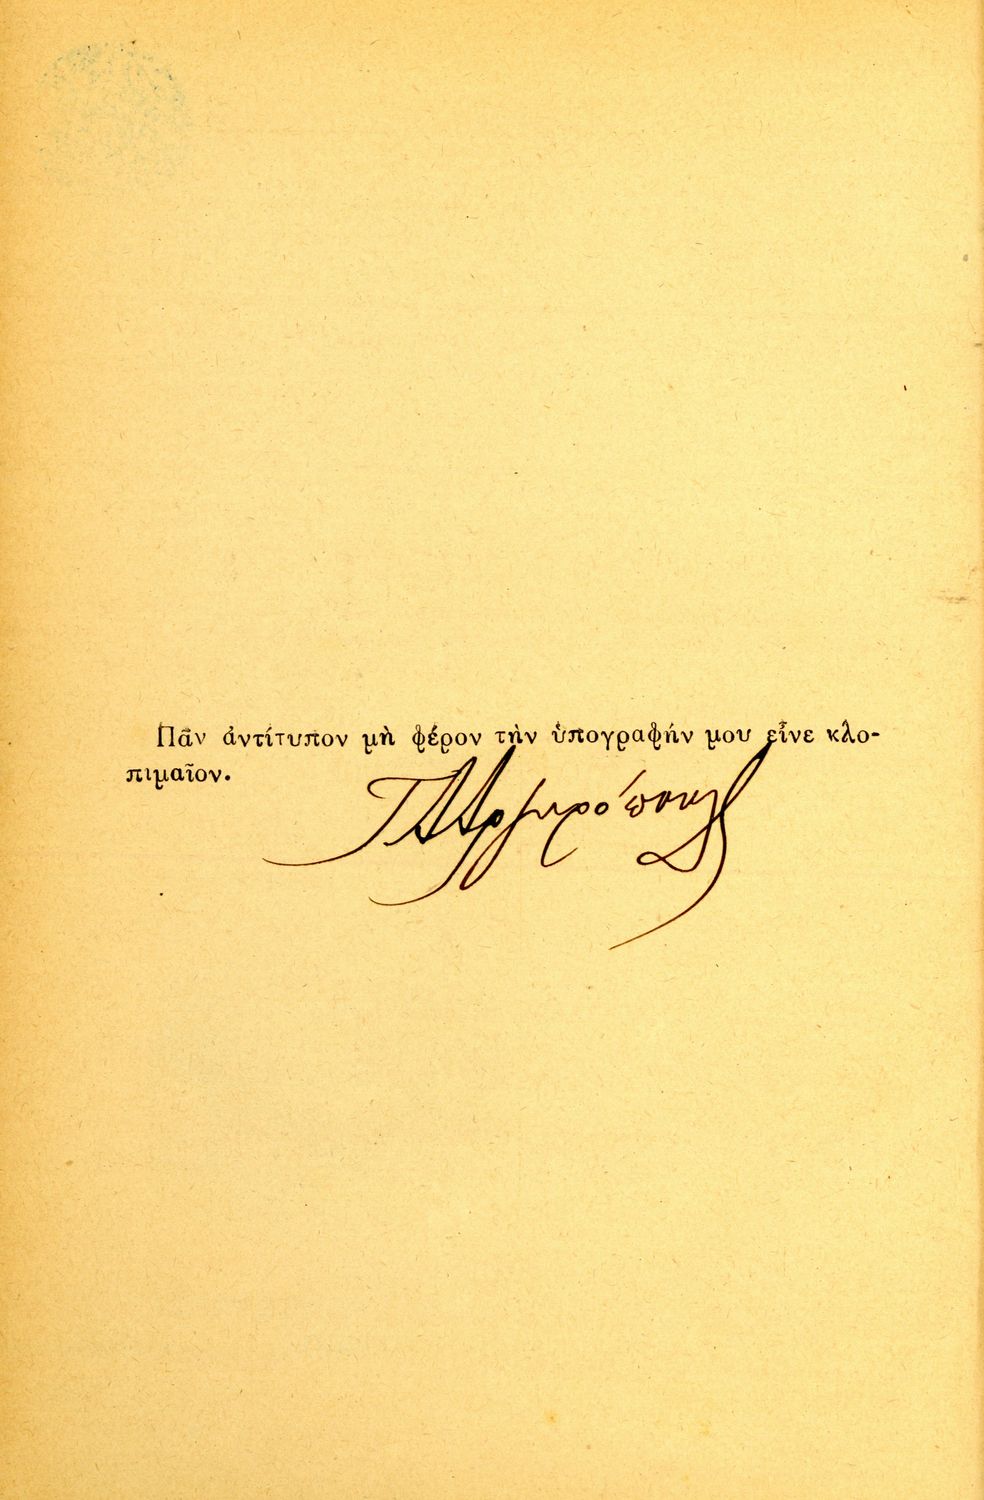 Πᾶν ἀντίτυπον μὴ φέρον τὴν ὑπογραφήν μου εἶνε κλο-
πιμαῖον.
Ἀργυρόπουλος